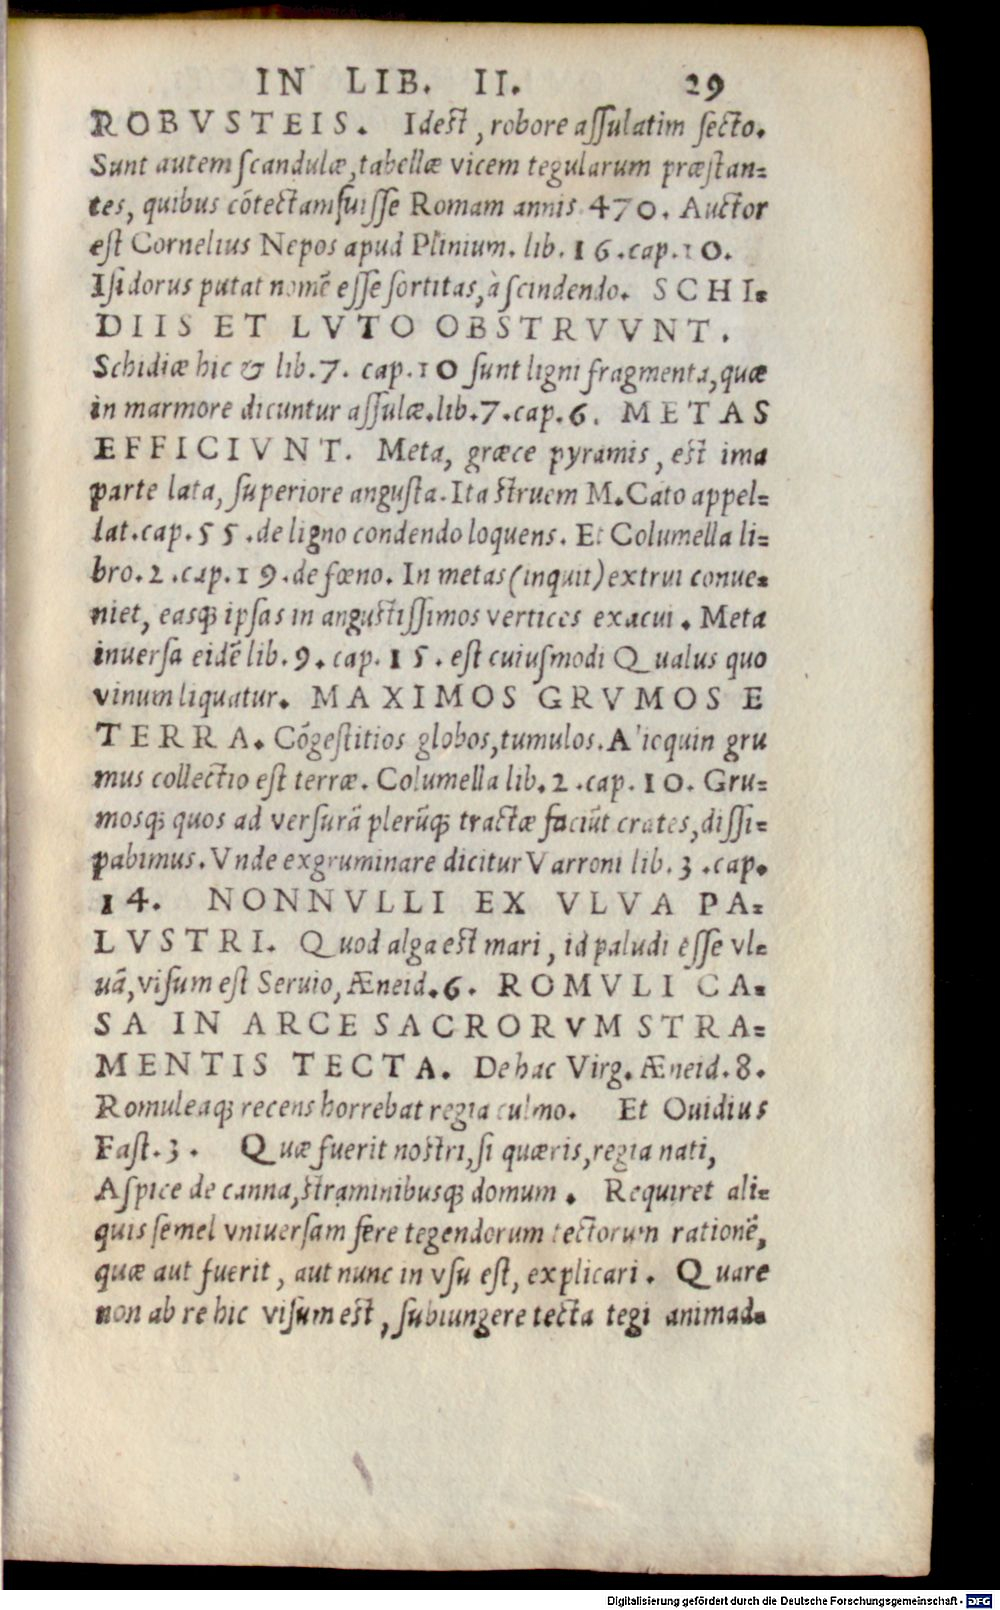 IN LIB. II. 29
ROBVSTEIS. Idest, robore assulatim secto.
Sunt autem scandulæ, tabellæ vicem tegularum præstan=
tes, quibus cõtectam fuisse Romam annis 470. Auctor
est Cornelius Nepos apud Plinium. lib. 16. cap. 10.
Isidorus putat nomẽ esse sortitas, à scindendo. SCHI=
DIIS ET LVTO OBSTRVVNT.
Schidiæ hic & lib. 7. cap. 10 sunt ligni fragmenta, quæ
in marmore dicuntur assulæ. lib. 7. cap. 6. METAS
EFFICIVNT. Meta, græce pyramis, est ima
parte lata, superiore angusta. Ita struem M. Cato appel=
lat. cap. 55. de ligno condendo loquens. Et Columella li=
bro. 2. cap. 19. de fœno. In metas (inquit) extrui conue=
niet, easq; ipsas in angustissimos vertices exacui. Meta
inuersa eidẽ lib. 9. cap. 15. est cuiusmodi Qualus quo
vinum liquatur. MAXIMOS GRVMOS E
TERRA. Cõgestitios globos, tumulos. Alicquin gru
mus collectio est terræ. Columella lib. 2. cap. 10. Gru=
mosq; quos ad versurã plerũq; tractæ faciũt crates, dissi=
pabimus. Vnde exgruminare dicitur Varroni lib. 3. cap.
14. NONNVLLI EX VLVA PA=
LVSTRI. Quod alga est mari, id paludi esse vl=
uã, visum est Seruio, Æneid. 6. ROMVLI CA=
SA IN ARCE SACRORVM STRA=
MENTIS TECTA. De hac Virg. Æneid. 8.
Romuleaq; recens horrebat regia culmo. Et Ouidius
Fast. 3. Quæ fuerit nostri, si quæris, regia nati,
Aspice de canna, straminibusq; domum. Requiret ali=
quis semel vniuersam fere tegendorum tectorum rationẽ,
quæ aut fuerit, aut nunc in vsu est, explicari. Quare
non ab re hic visum est, subiungere tecta tegi animad=
Digitalisierung gefördert durch die Deutsche Forschungsgemeinschaft - DFG